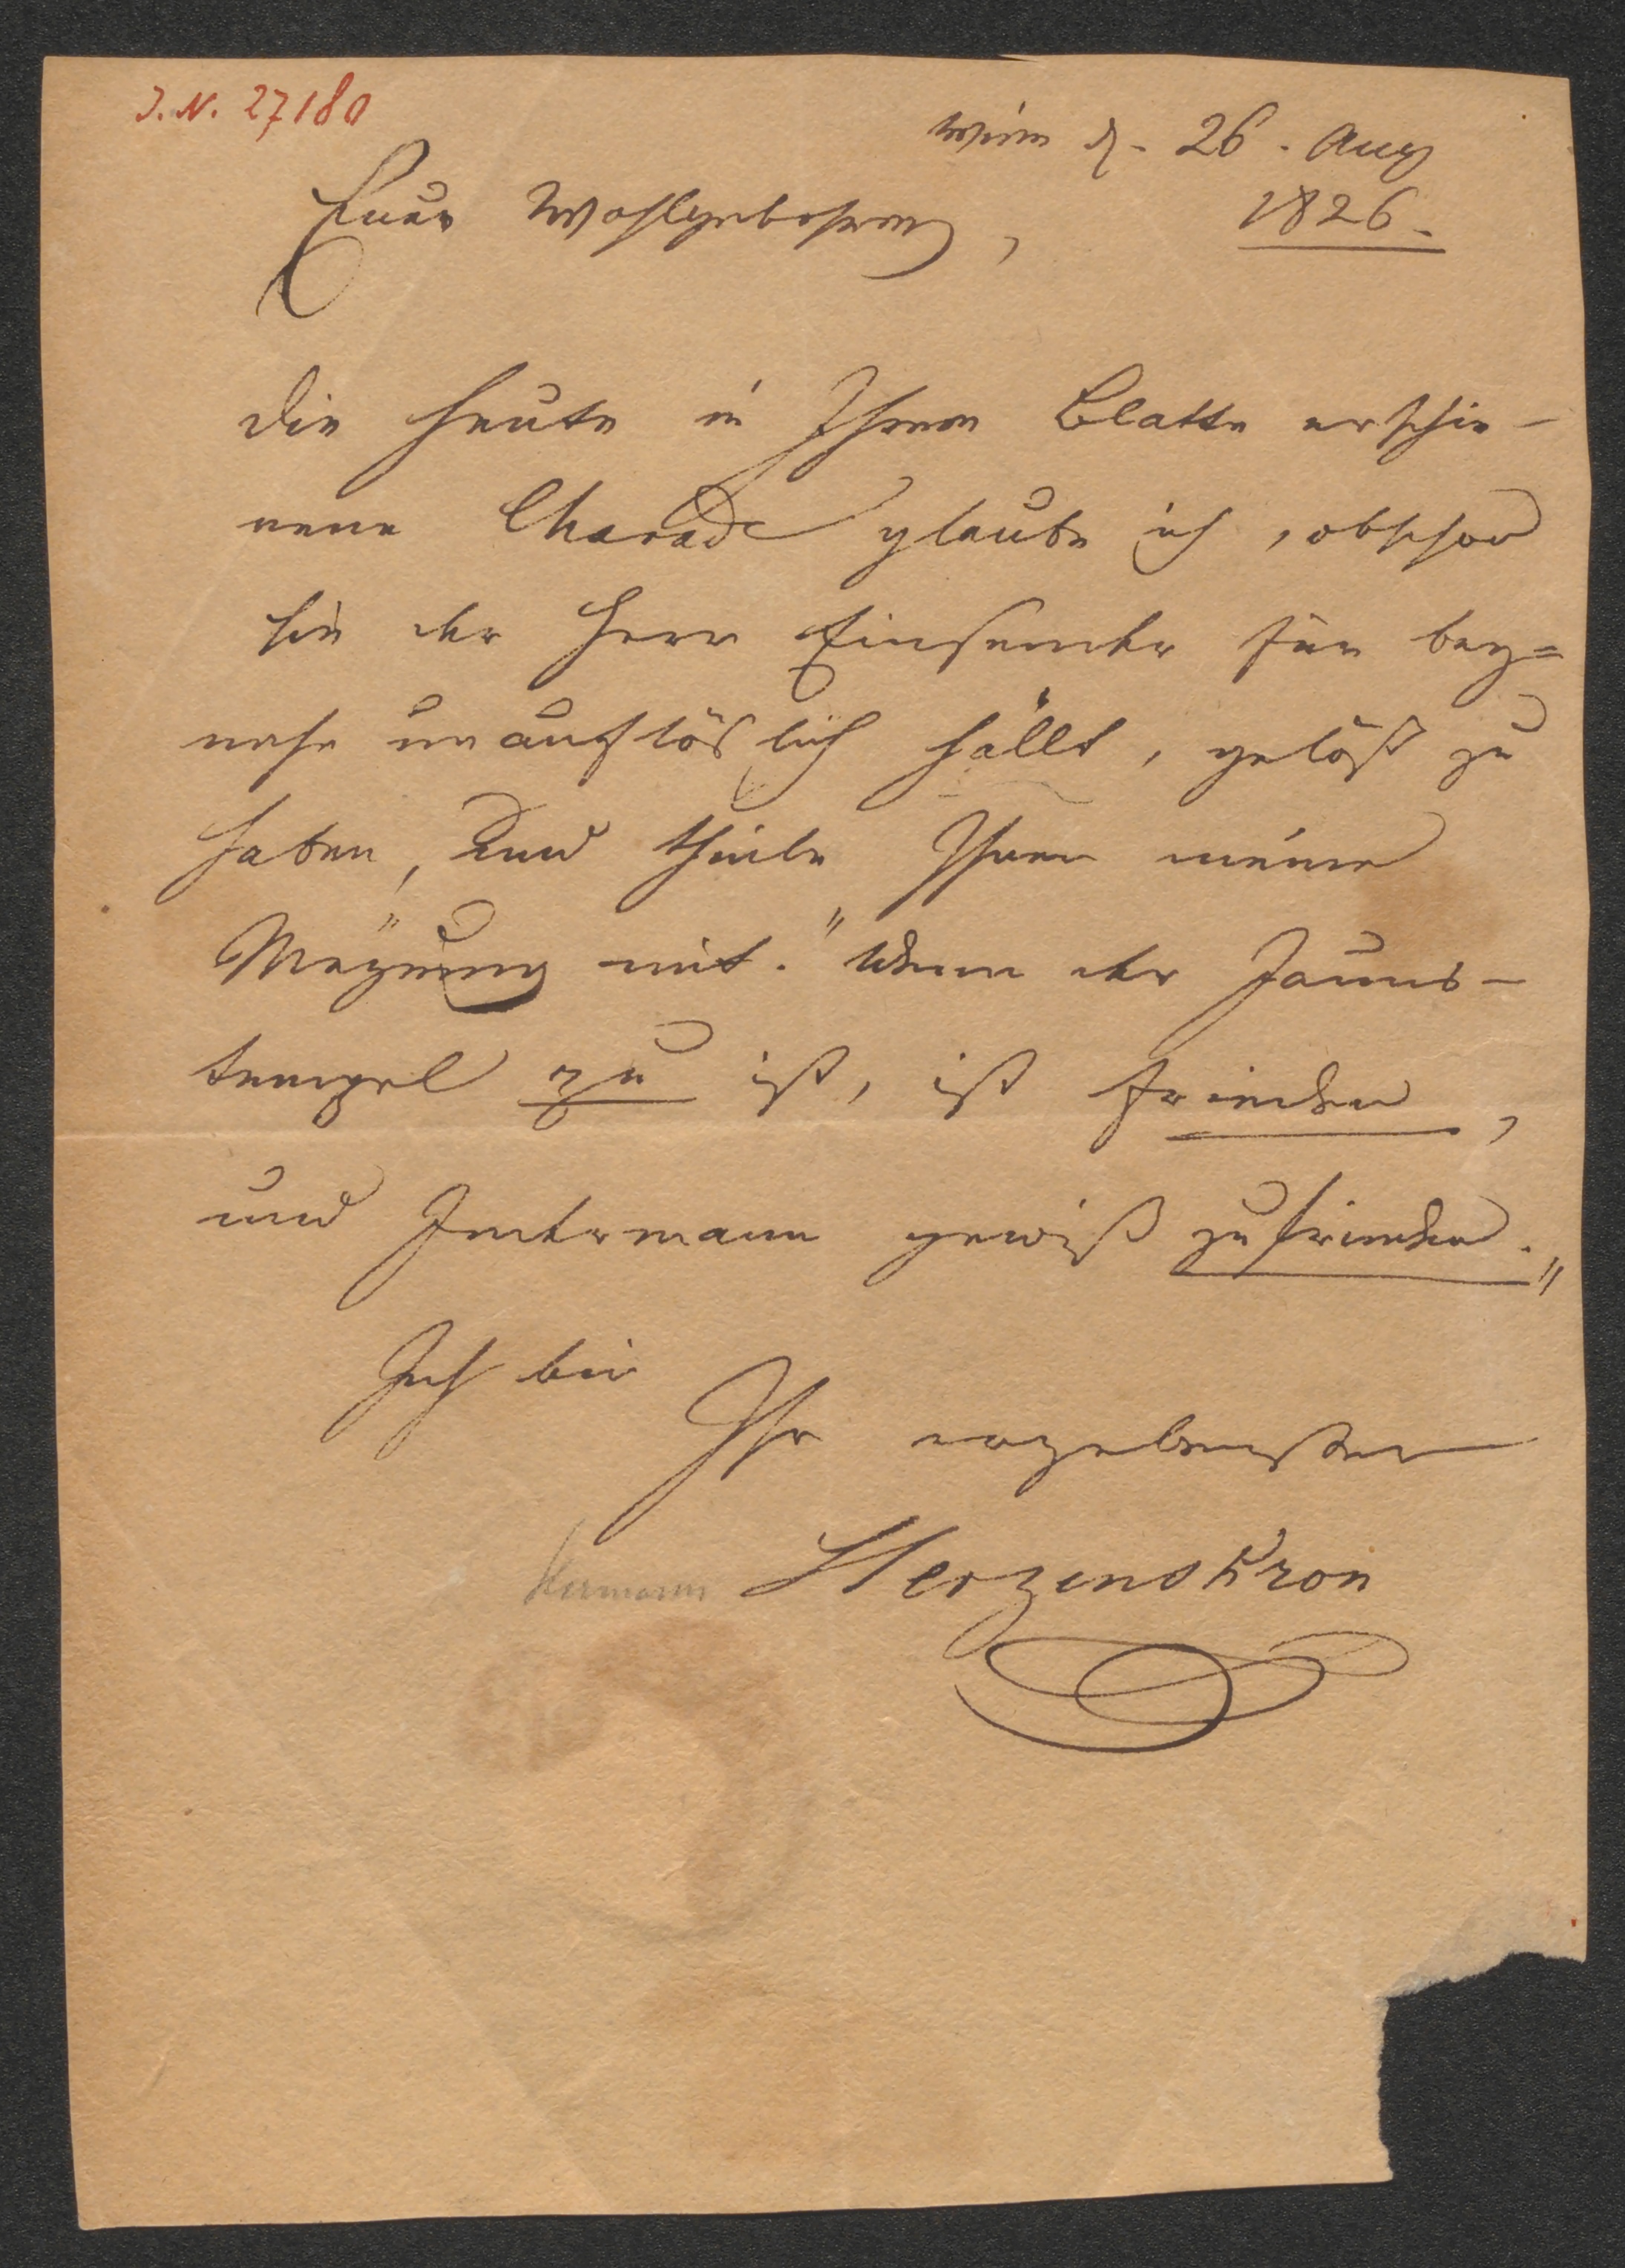 J. N. 27180
Wien d. 26. Aug
1826.
Euer Wohlgebohren,
Die heute in Ihrem Blatte erschie-
nene Charade glaube ich, obschon
sie der Herr Einsender für bey=
nahe unauflöslich hällt, gelößt zu
haben, und theile Ihnen meine
Meÿnung mit. "Wenn der Janus-
tempel zu ist, ist Frieden,
und Jedermann gewiß zufrieden."
Ich bin
Ihr ergebenster
Hermann Herzenskron